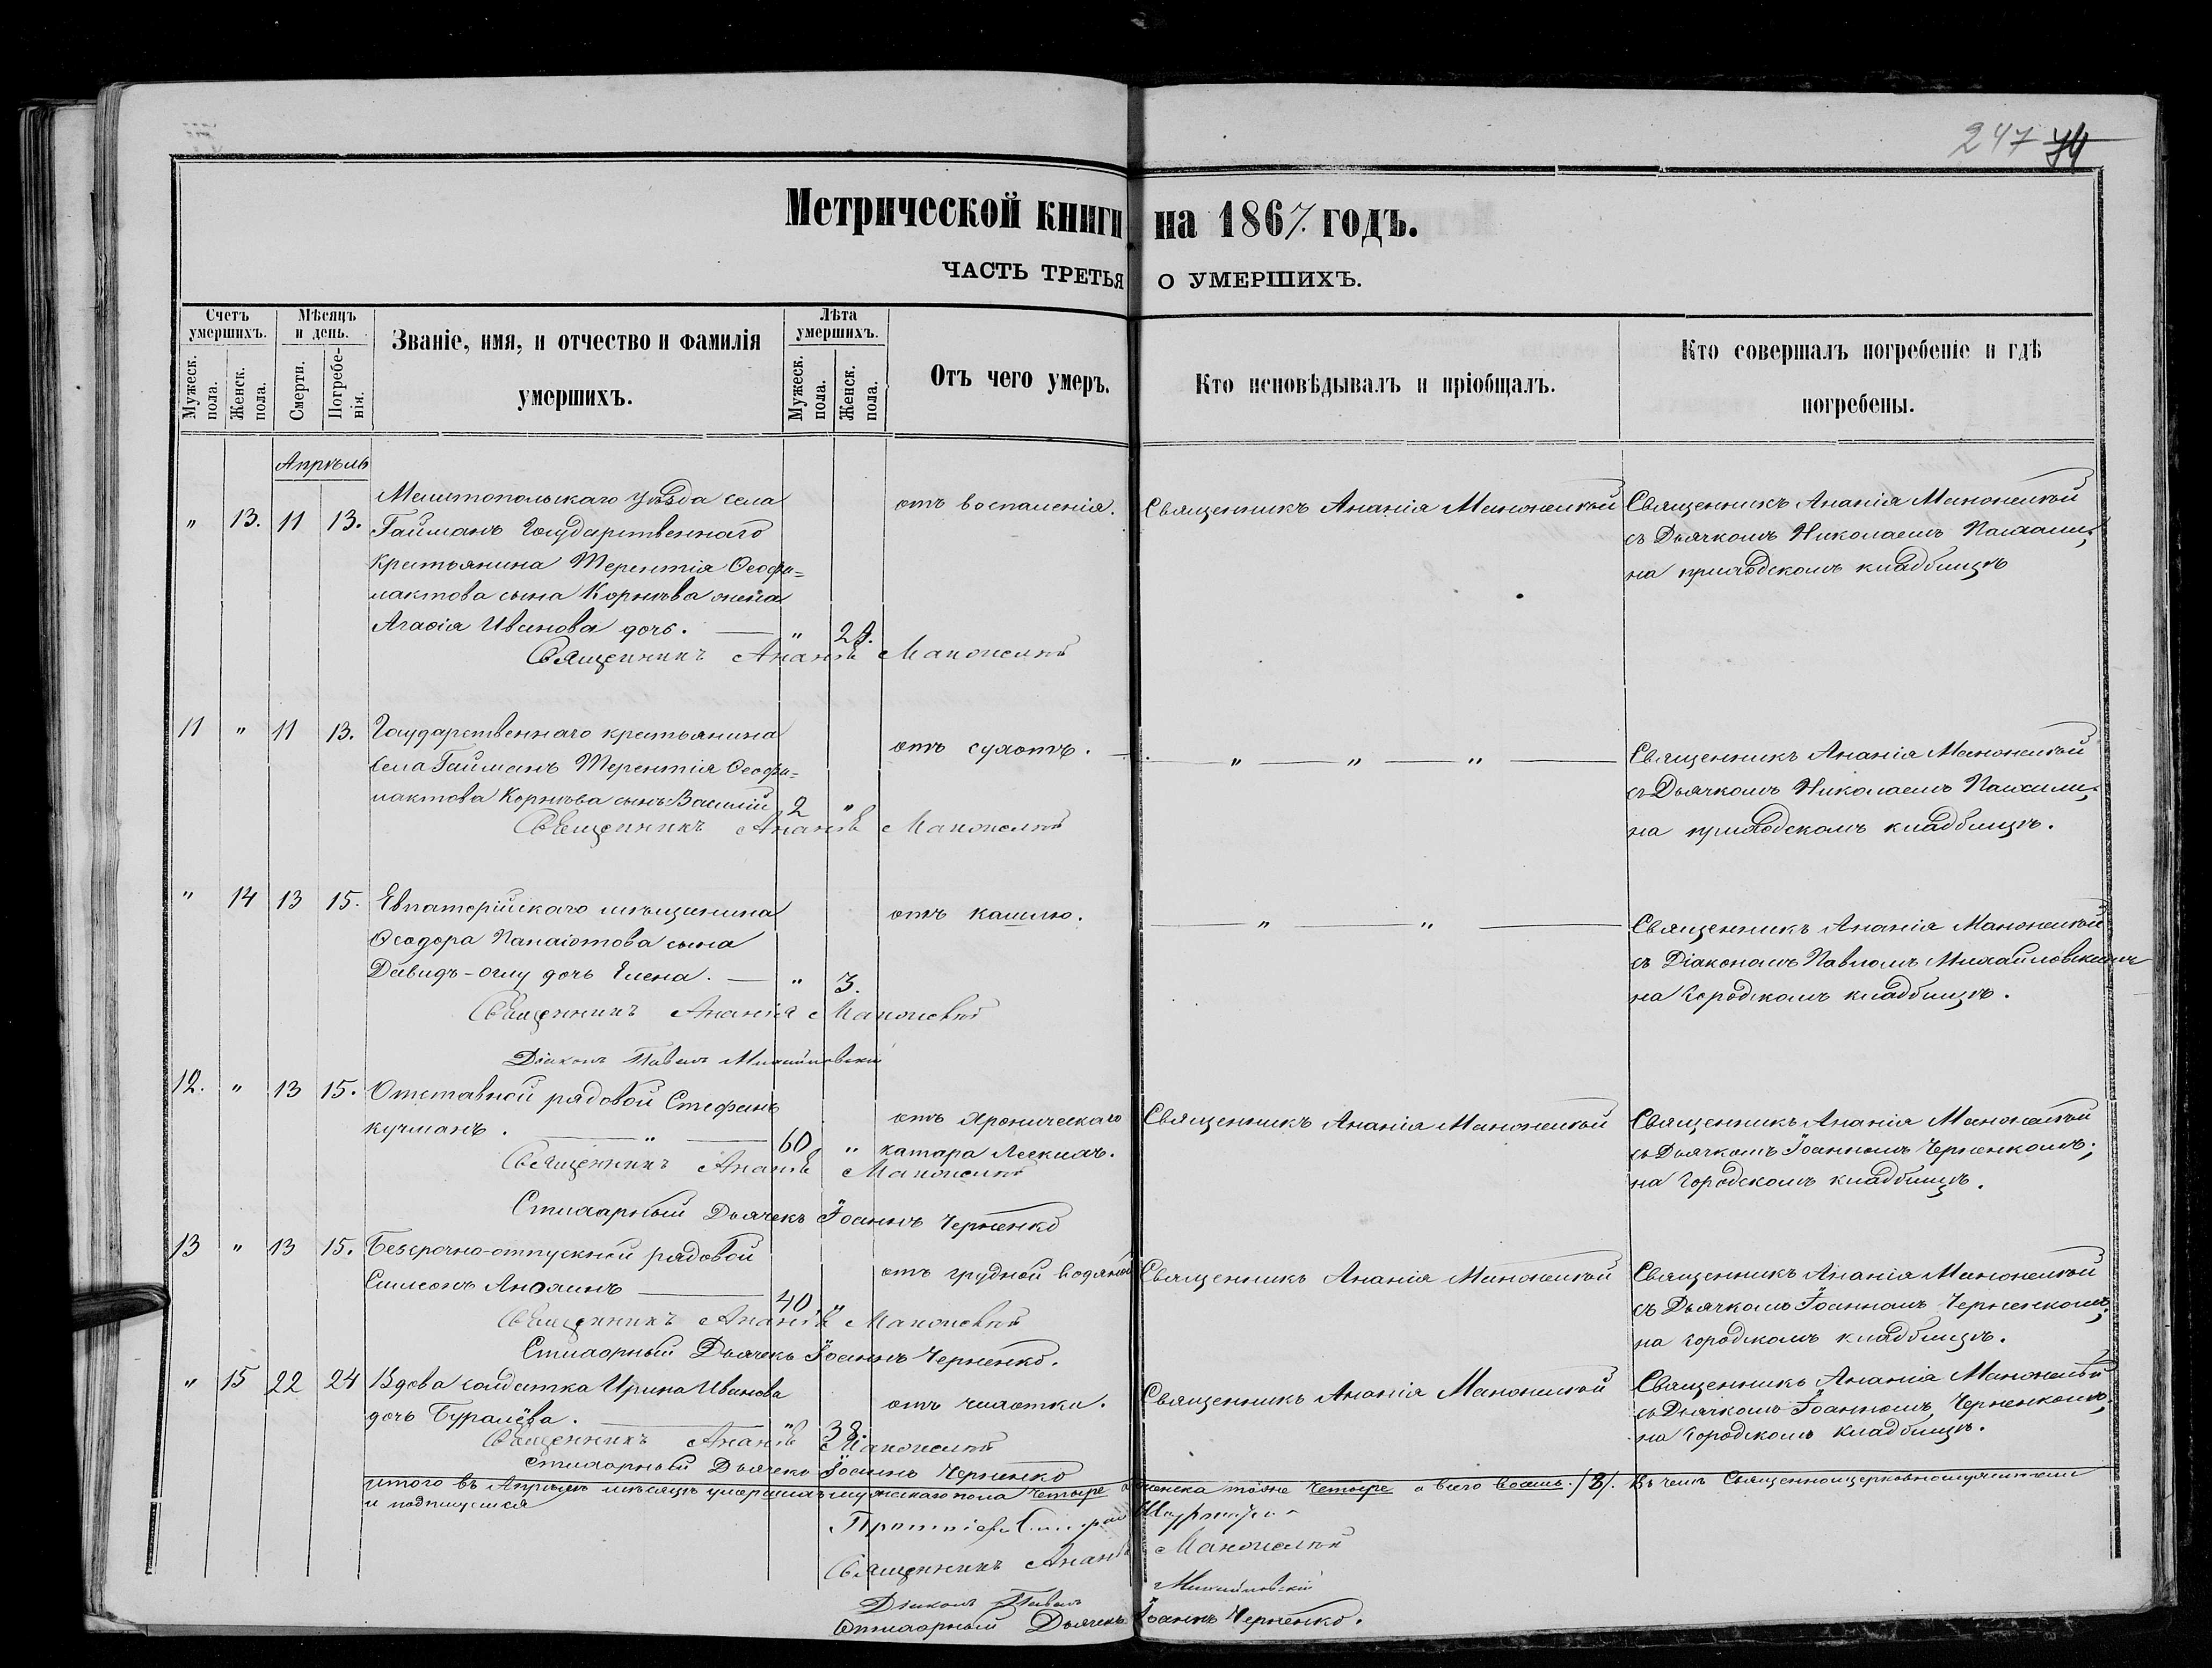 247 74
Метрической книги на 1867. годъ.
ЧАСТЬ ТРЕТЬЯ О УМЕРШИХЪ.
Счетъ умершихъ.
Мужеск. пола.
Женск. пола.
Мѣсяцъ и день.
Смерти.
Погребенія.
Званіе, имя, и отчество и фамилія
умершихъ.
Лѣта умершихъ.
Мужеск. пола.
Женск. пола.
Отъ чего умеръ.
Кто исповѣдывалъ и пріобщалъ.
Кто совершалъ погребеніе и гдѣ
погребены.
Апрѣль
" 13. 11 13.
Мелитопольскаго уѣзда села
Гайманъ Государственнаго
крестьянина Терентія Ѳеофи=
лактова сына Корнѣва жена
Агафія Иванова дочь. — " 29.
отъ воспаленія.
Священникъ Ананія
Священникъ Ананія
съ Дьячкомъ Николаемъ
на приходскомъ кладбищѣ
Священникъ Ананія
11 " 11 13.
Государственнаго крестьянина
села Гайманъ Терентія Ѳеофи=
лактова Корнѣва сынъ Василій 2 "
отъ сухотъ.
— " — " — " —
Священникъ Ананія
съ Дьячкомъ Николаемъ
на приходскомъ кладбищѣ.
Священникъ Ананія
" 14 13 15.
Евпаторійскаго мѣщанина
Ѳеодора Панаіотова сына
Давидъ-оглу дочь Елена. — " 3.
отъ кашлю.
— " — " —
Священникъ Ананія
съ Діакономъ Павломъ Михайловскимъ
на Городскомъ кладбищѣ.
Священникъ Ананія
Діаконъ Павелъ Михайловскій
12. " 13 15.
Отставной рядовой Стефанъ
Кучманъ. — " — 60 "
отъ хроническаго
катара легкихъ.
Священникъ Ананія
Священникъ Ананія
съ Дьячкомъ Іоанномъ Черненкомъ;
на Городскомъ кладбищѣ.
Священникъ Ананія
Стихарный Дьячекъ Іоаннъ Черненко
13 " 13 15.
Безсрочно-отпускной рядовой
Симеонъ — 40. "
отъ грудной водяной
Священникъ Ананія
Священникъ Ананія
съ Дьячкомъ Іоанномъ Черненкомъ;
на городскомъ кладбищѣ.
Священникъ Ананія
Стихарный Дьячекъ Іоаннъ Черненко.
" 15 22 24
Вдова солдатка Ирина Иванова
дочь Буралёва. — " 38.
отъ чихотки.
Священникъ Ананія
Священникъ Ананія
съ Дьячкомъ Іоанномъ Черненкомъ;
на Городскомъ кладбищѣ.
Священникъ Ананія
Стихарный Дьячекъ Іоаннъ Черненко
итого въ Апрѣлѣ мѣсяцѣ умершихъ мужскаго пола четыре а женска тоже четыре а всего восемь. /8/. Въ чемъ Священноцерковнослужители
и подпишемся
Священникъ Ананія
Діаконъ Павелъ Михайловскій
Стихарный Дьячекъ Іоаннъ Черненко.